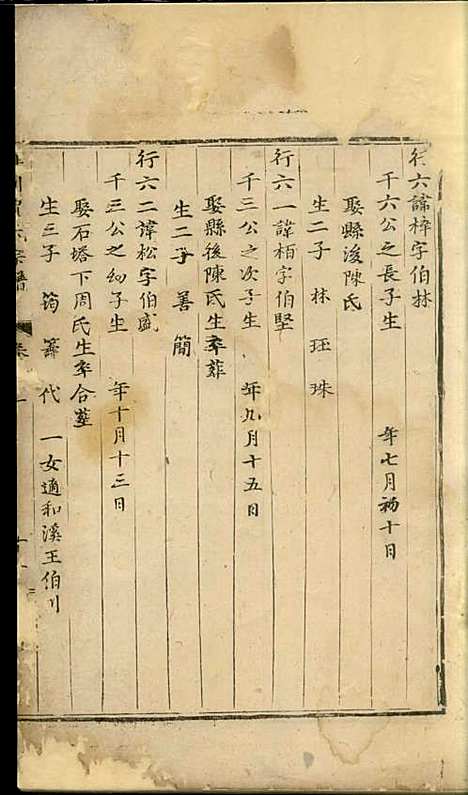 行六諱梓字伯林
千六公之長子生 年七月初十日
娶縣後陳氏
生二子 林 玨 珠
行六一諱栢字伯堅
千三公之次子生 年九月十五日
娶縣後陳氏生卒葬
生二子 善 簡
行六二諱松字伯盛
千三公之幼子生 年十月十三日
娶石塔下周氏生卒合葬
生三子 筠 籌 代 一女適和溪王伯川
宗譜
卷一